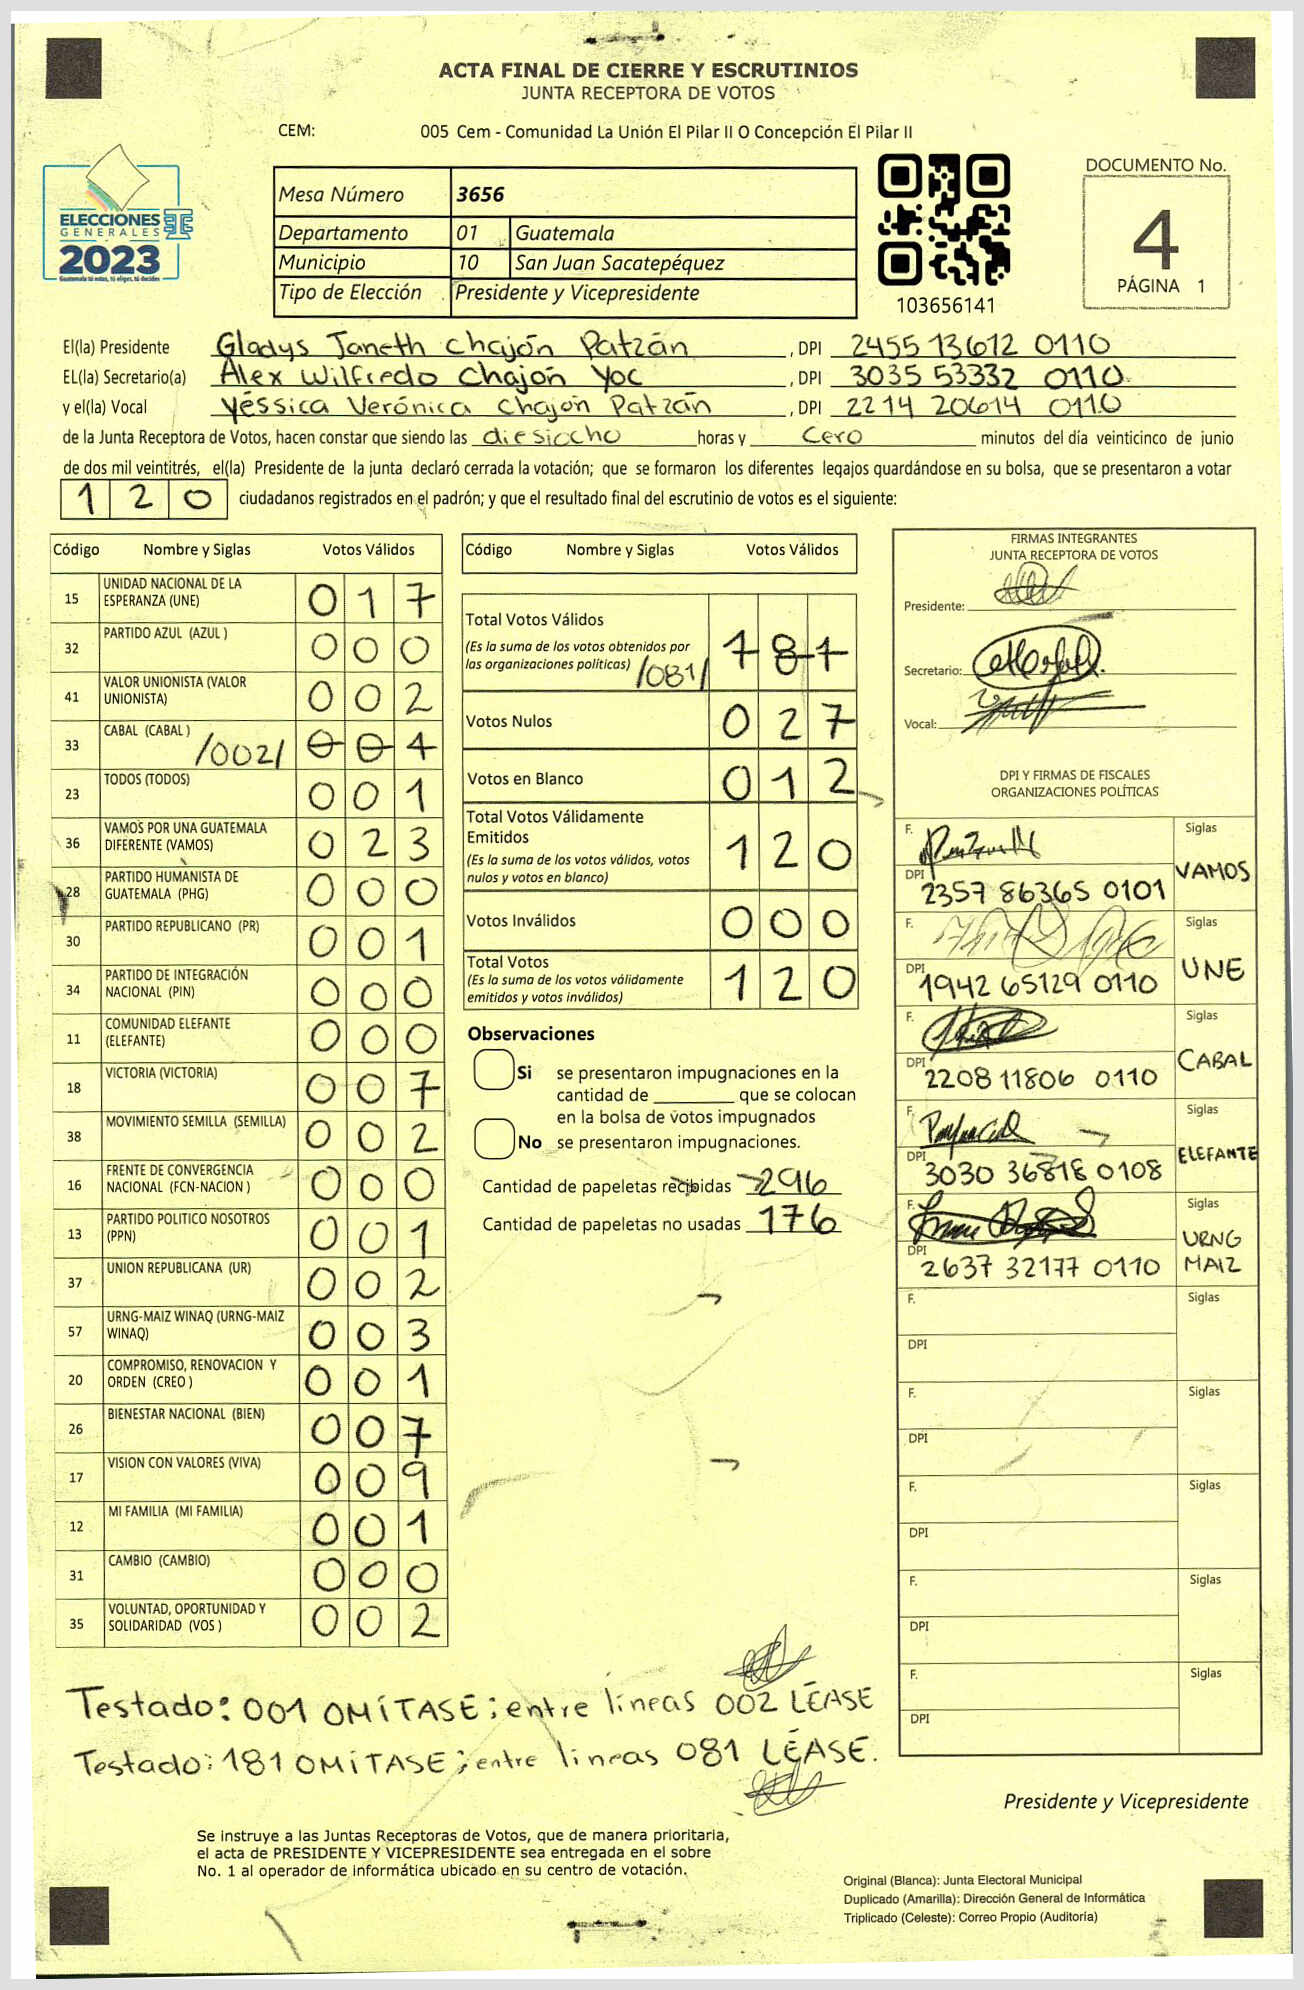 ACTA FINAL DE CIERRE Y ESCRUTINIOS
JUNTA RECEPTORA DE VOTOS
CEM: 005 Cem - Comunidad La Unión El Pilar II O Concepción El Pilar II
ELECCIONES
GENERALES
2023
Guatemala tú votas, tú eliges, tú decides
Mesa Número 3656
Departamento 01 Guatemala
Municipio 10 San Juan Sacatepéquez
Tipo de Elección Presidente y Vicepresidente
103656141
DOCUMENTO No.
4
PÁGINA 1
El(la) Presidente Gladys Janeth Chajón Patzán , DPI 2455 13612 0110
EL(la) Secretario(a) Alex Wilfredo Chajón Yoc , DPI 3035 53332 0110
y el(la) Vocal Yéssica Verónica Chajón Patzán , DPI 2214 20614 0110
de la Junta Receptora de Votos, hacen constar que siendo las diesiocho horas y cero minutos del día veinticinco de junio
de dos mil veintitrés, el(la) Presidente de la junta declaró cerrada la votación; que se formaron los diferentes legajos guardándose en su bolsa, que se presentaron a votar
120 ciudadanos registrados en el padrón; y que el resultado final del escrutinio de votos es el siguiente:
Código Nombre y Siglas Votos Válidos
15 UNIDAD NACIONAL DE LA ESPERANZA (UNE) 017
32 PARTIDO AZUL (AZUL ) 000
41 VALOR UNIONISTA (VALOR UNIONISTA) 002
33 CABAL (CABAL ) /002/ 004
23 TODOS (TODOS) 001
36 VAMOS POR UNA GUATEMALA DIFERENTE (VAMOS) 023
28 PARTIDO HUMANISTA DE GUATEMALA (PHG) 000
30 PARTIDO REPUBLICANO (PR) 001
34 PARTIDO DE INTEGRACIÓN NACIONAL (PIN) 000
11 COMUNIDAD ELEFANTE (ELEFANTE) 000
18 VICTORIA (VICTORIA) 007
38 MOVIMIENTO SEMILLA (SEMILLA) 002
16 FRENTE DE CONVERGENCIA NACIONAL (FCN-NACION ) 000
13 PARTIDO POLITICO NOSOTROS (PPN) 001
37 UNION REPUBLICANA (UR) 002
57 URNG-MAIZ WINAQ (URNG-MAIZ WINAQ) 003
20 COMPROMISO, RENOVACION Y ORDEN (CREO ) 001
26 BIENESTAR NACIONAL (BIEN) 007
17 VISION CON VALORES (VIVA) 009
12 MI FAMILIA (MI FAMILIA) 001
31 CAMBIO (CAMBIO) 000
35 VOLUNTAD, OPORTUNIDAD Y SOLIDARIDAD (VOS ) 002
Código Nombre y Siglas Votos Válidos
Total Votos Válidos
(Es la suma de los votos obtenidos por
las organizaciones políticas) /081/ 181
Votos Nulos 027
Votos en Blanco 012
Total Votos Válidamente
Emitidos 120
(Es la suma de los votos válidos, votos
nulos y votos en blanco)
Votos Inválidos 000
Total Votos 120
(Es la suma de los votos válidamente
emitidos y votos inválidos)
Observaciones
Si se presentaron impugnaciones en la
cantidad de ________ que se colocan
en la bolsa de votos impugnados
No se presentaron impugnaciones.
Cantidad de papeletas recibidas 296
Cantidad de papeletas no usadas 176
FIRMAS INTEGRANTES
JUNTA RECEPTORA DE VOTOS
Presidente:
Secretario:
Vocal:
DPI Y FIRMAS DE FISCALES
ORGANIZACIONES POLÍTICAS
F. Siglas VAMOS
DPI 2357 86365 0101
F. Siglas UNE
DPI 1942 65129 0110
F. Siglas CABAL
DPI 2208 11806 0110
F. Siglas ELEFANTE
DPI 3030 36818 0108
F. Siglas URNG MAIZ
DPI 2637 32177 0110
F. Siglas
DPI
F. Siglas
DPI
F. Siglas
DPI
F. Siglas
DPI
F. Siglas
DPI
Testado: 001 OMÍTASE; entre líneas 002 LÉASE
Testado: 181 OMÍTASE; entre líneas 081 LÉASE.
Presidente y Vicepresidente
Se instruye a las Juntas Receptoras de Votos, que de manera prioritaria,
el acta de PRESIDENTE Y VICEPRESIDENTE sea entregada en el sobre
No. 1 al operador de informática ubicado en su centro de votación.
Original (Blanca): Junta Electoral Municipal
Duplicado (Amarilla): Dirección General de Informática
Triplicado (Celeste): Correo Propio (Auditoría)